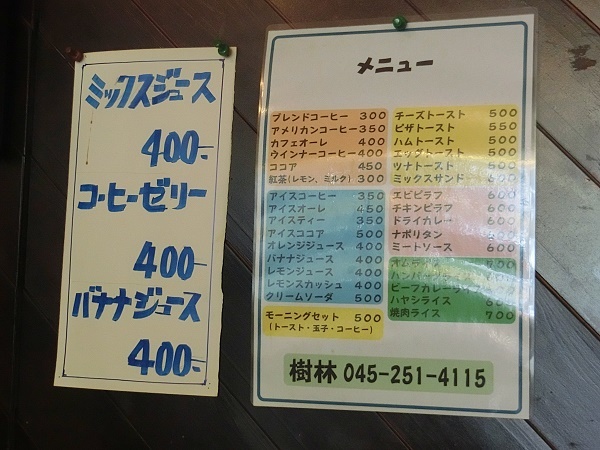 ミックスジュース
400-
コーヒーゼリー
400-
バナナジュース
400-
メニュー
ブレンドコーヒー 300
アメリカンコーヒー 350
カフェオーレ 400
ウインナーコーヒー 400
ココア 450
紅茶(レモン、ミルク) 300
アイスコーヒー 350
アイスオーレ 450
アイスティー 350
アイスココア 500
オレンジジュース 400
バナナジュース 400
レモンジュース 400
レモンスカッシュ 400
クリームソーダ 500
モーニングセット 500
(トースト・玉子・コーヒー)
チーズトースト 500
ピザトースト 550
ハムトースト 500
エッグトースト 500
ツナトースト 500
ミックスサンド 600
エビピラフ 600
チキンピラフ 600
ドライカレー 600
ナポリタン 600
ミートソース 600
オムライス 700
ハンバーグライス
ビーフカレーライス
ハヤシライス
焼肉ライス 700
樹林 045-251-4115